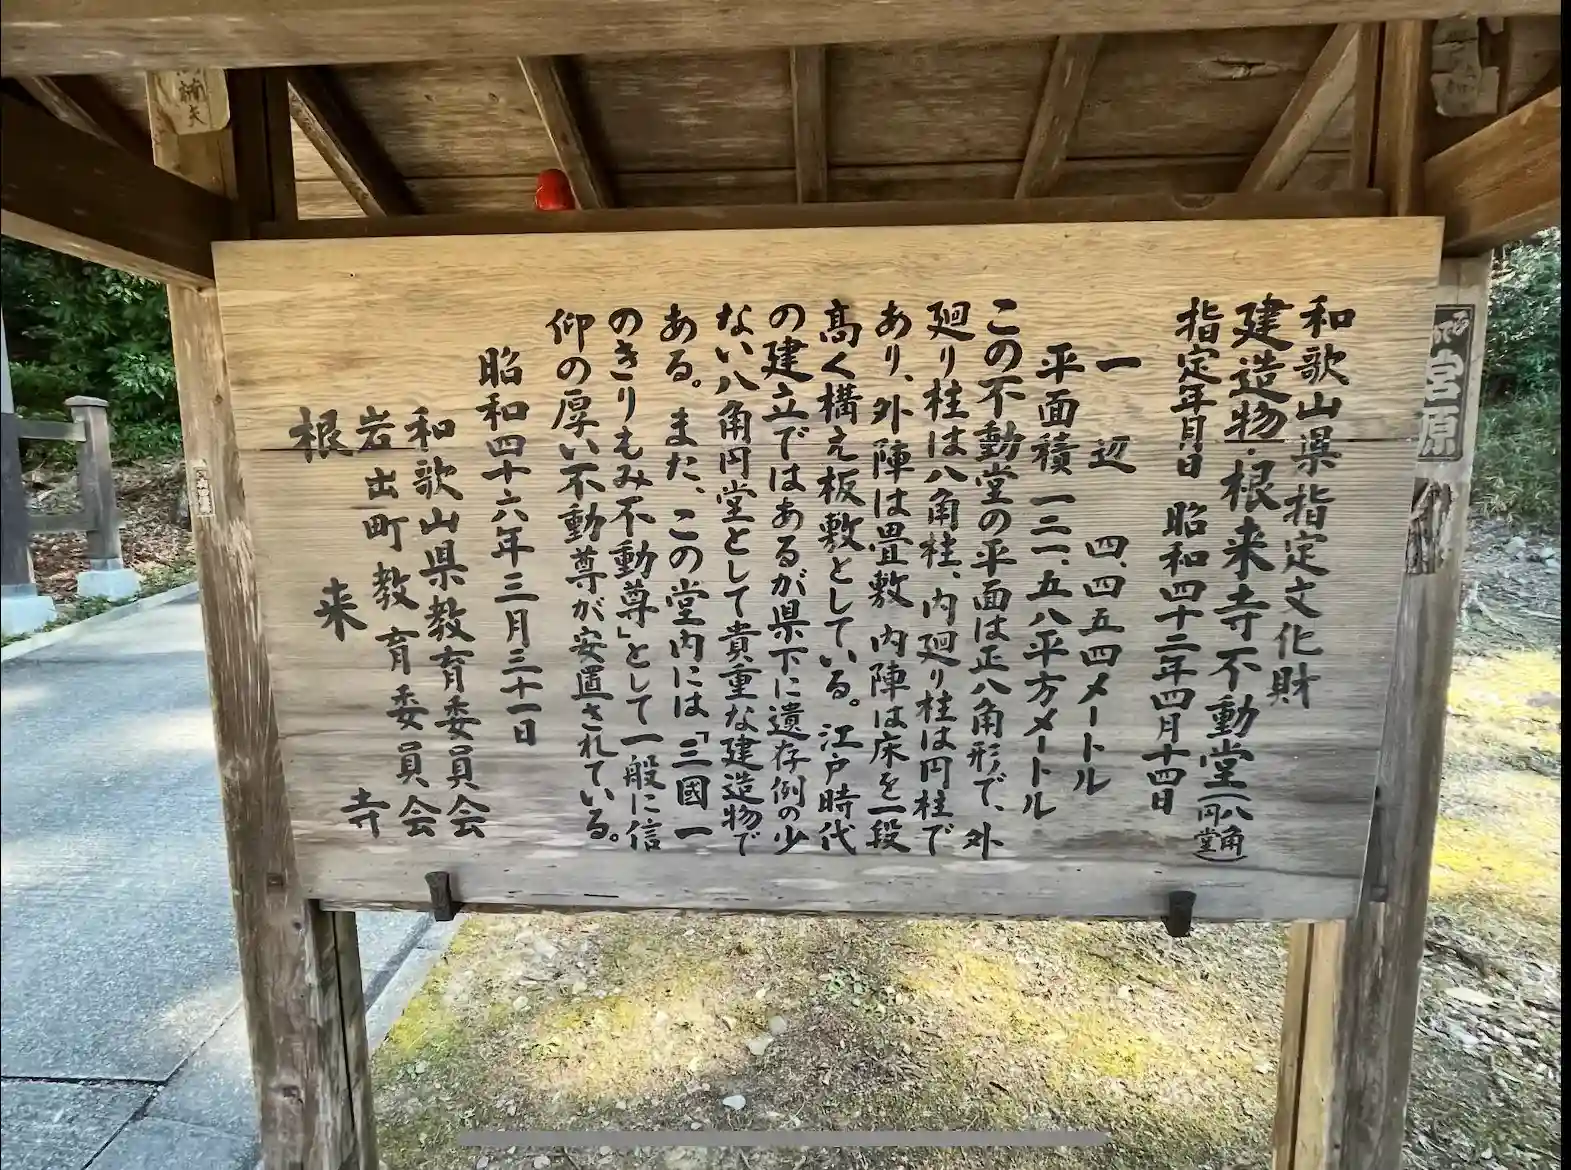 和歌山県指定文化財
建造物・根来寺不動堂（八角円堂）
指定年月日 昭和四十二年四月十四日
一辺 四、四五四メートル
平面積 一二一、五八平方メートル
この不動堂の平面は正八角形で、外
廻り柱は八角柱、内廻り柱は円柱で
あり、外陣は畳敷 内陣は床を一段
高く構え板敷としている。江戸時代
の建立ではあるが県下に遺存例の少
ない八角円堂として貴重な建造物で
ある。また、この堂内には「三國一
のきりもみ不動尊」として一般に信
仰の厚い不動尊が安置されている。
昭和四十六年三月三十一日
和歌山県教育委員会
岩出町教育委員会
根来寺
宮原